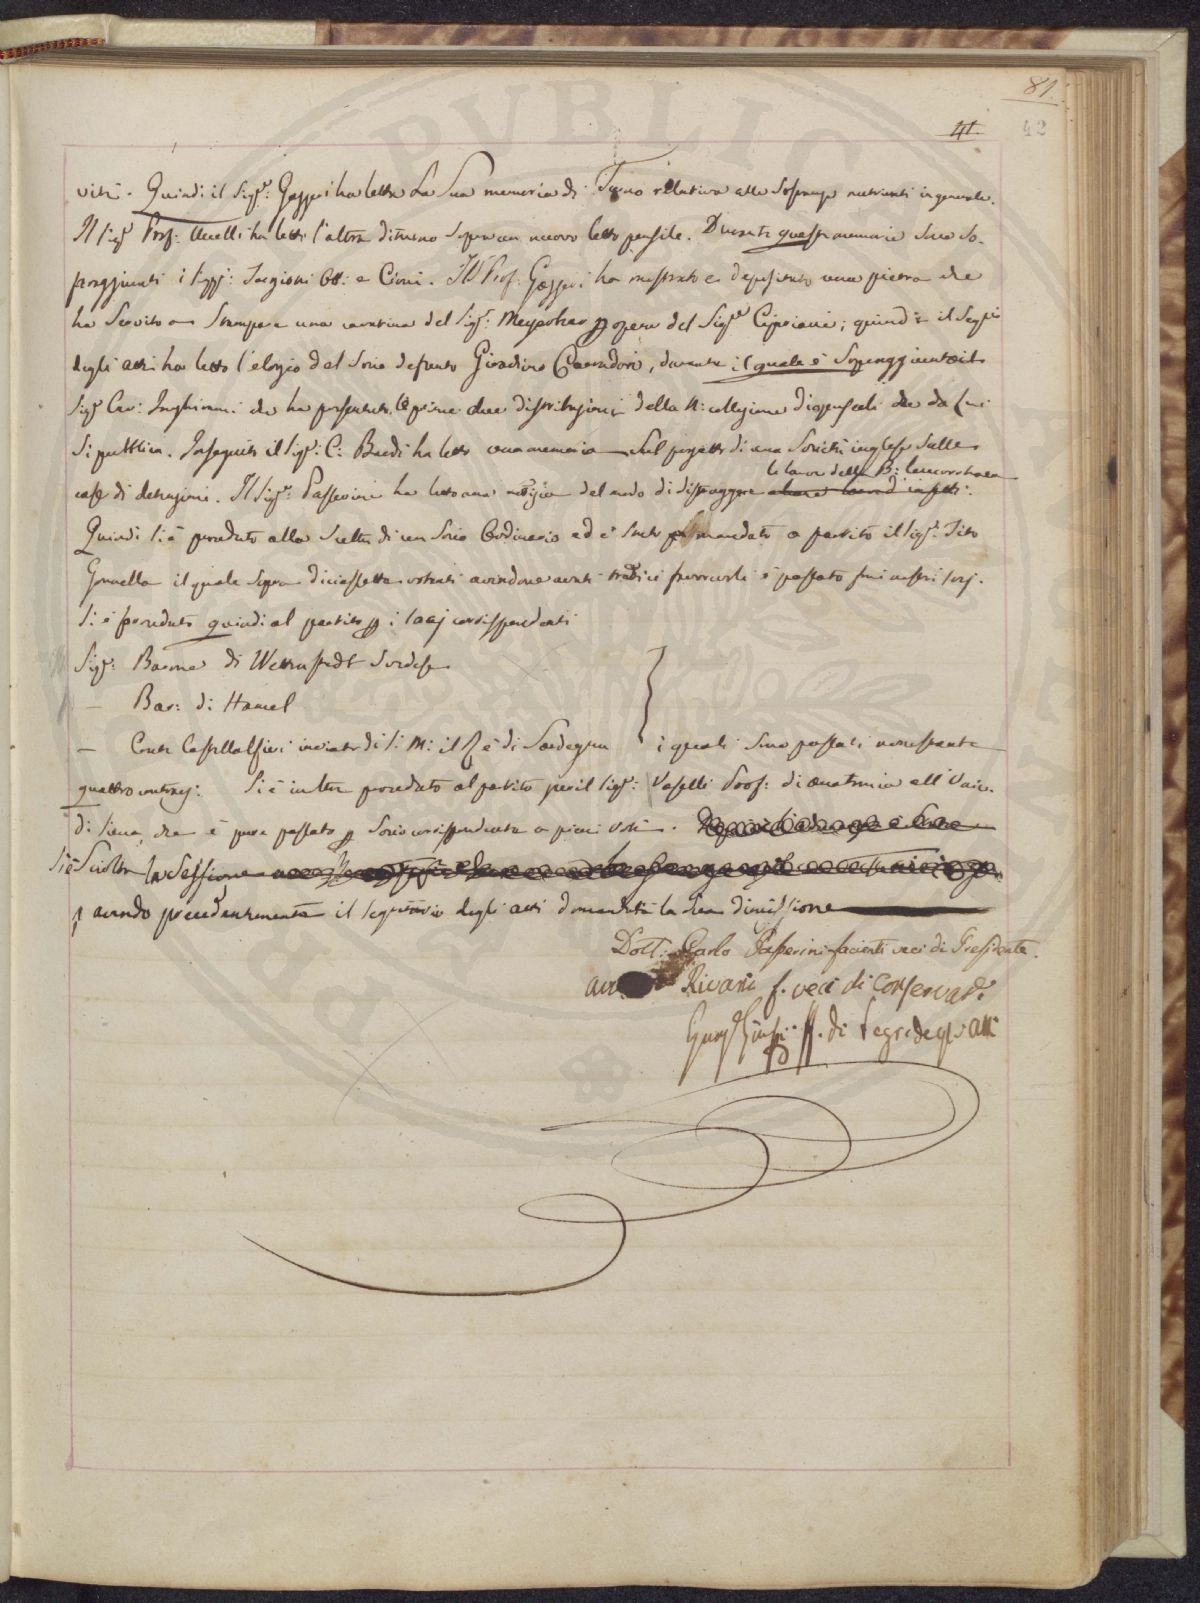 81.
41.
42
visi. Quindi il Sigr: Gazzeri ha letta la Sua memoria di Turno relativa alle Sostanze nutrienti in generale.
Il Sigr Prof: Uccelli ha letto l'altra di turno sopra un nuovo letto pensile. Durante queste memorie Sono So-
praggiunti i Sigri: Targioni Ott: e Cioni. Il Prof: Gazzeri ha mostrato e depositato una pietra che
ha Servito a Stampare una cartina del Sigr: opera del Sigre Cipriani; quindi il Segrio
degli atti ha letto l'elogio del Socio defunto Giovacchino Carradori, durante il quale è Sopraggiunto il
Sigr Cav: Inghirami che ha presentato le prime due distribuzioni della N: collezione d'opuscoli che da Lui
Si pubblica. In seguito il Sigr: C: Bardi ha letto una memoria Sul progetto di una Società inglese Sulle
le larve della B:
case di detenzione. Il Sigr: Passerini ha letto una notizia del modo di distruggere
Quindi Si è proceduto alla Scelta di un Socio Ordinario ed è Stato mandato a partito il Sigr: Tito
Gonnella il quale Sopra diciassette votanti avendone avuti tredici favorevoli è passato fra i nostri Socj.
Si è proceduto quindi al partito p i Socj corrispondenti
Sigr: Barone di Wetterstedt Svedese
— Bar: di Hamel
— Conte Castellalfieri inviato di S: M: il Re di Sardegna i quali Sono passati nonostante
quattro contrarj: Si è inoltre proceduto al partito per il Sigr: Vaselli Prof: di anatomia all'Univ.
di Siena, che è pure passato p Socio corrispondente a pieni Voti.
Si è Sciolta la Sessione
avendo precedentemente il Segretario degli atti domandata la Sua dimissione
Dott: Carlo Passerini facente veci di Presidente.
Rivani f. veci di Conservatre
ff. di Segr degli atti